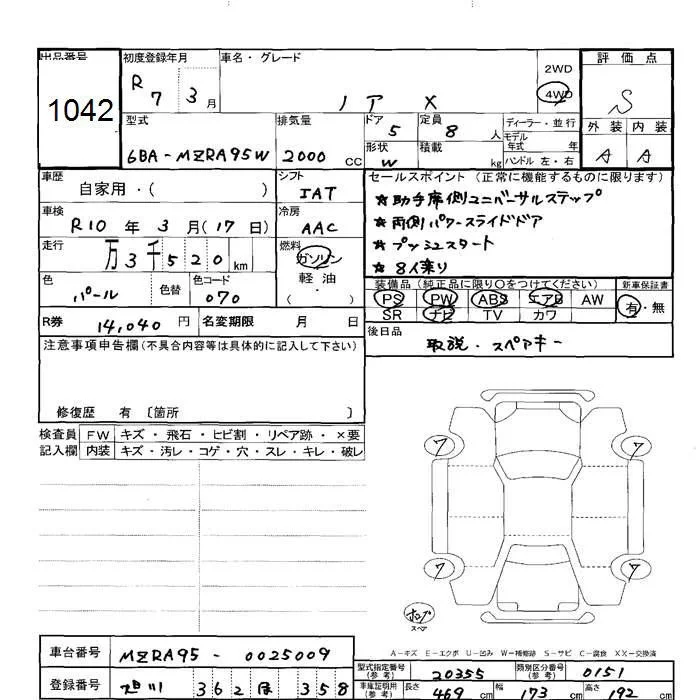 出品番号
1042
初度登録年月
R 7 3月
車名・グレード
ノア X
2WD
4WD
評価点
S
外装 内装
A A
型式
6BA-MZRA95W
排気量
2000 CC
ドア
5
定員
8 人
形状
W
積載
kg
ディーラー・並行
モデル年式 年
ハンドル 左・右
車歴
自家用・( )
シフト
IAT
車検
R10年3月(17日)
冷房
AAC
走行
万3千520km
燃料
ガソリン
軽油
・( )
色
パール
色替
色コード
070
R券 14,040円
名変期限 月 日
セールスポイント(正常に機能するものに限ります)
★助手席側ユニバーサルステップ
★両側パワースライドドア
★プッシュスタート
★8人乗り
装備品(純正品に限り○をつけてください)
PS PW ABS エアB AW
SR ナビ TV カワ
新車保証書
有・無
後日品
取説・スペアキー
注意事項申告欄(不具合内容等は具体的に記入して下さい)
修復歴 有 〔箇所 〕
検査員記入欄
FW キズ・飛石・ヒビ割・リペア跡・×要
内装 キズ・汚レ・コゲ・穴・スレ・キレ・破レ
ワ ワ
ワ ワ
スペア
A-キズ E-エクボ U-凹み W-補修跡 S-サビ C-腐食 XX-交換済
車台番号
MZRA95-0025009
登録番号
旭川 362 ほ 358
型式指定番号(参考)
20355
類別区分番号(参考)
0151
車庫証明用(参考)
長さ 469cm 幅 173cm 高さ 192cm